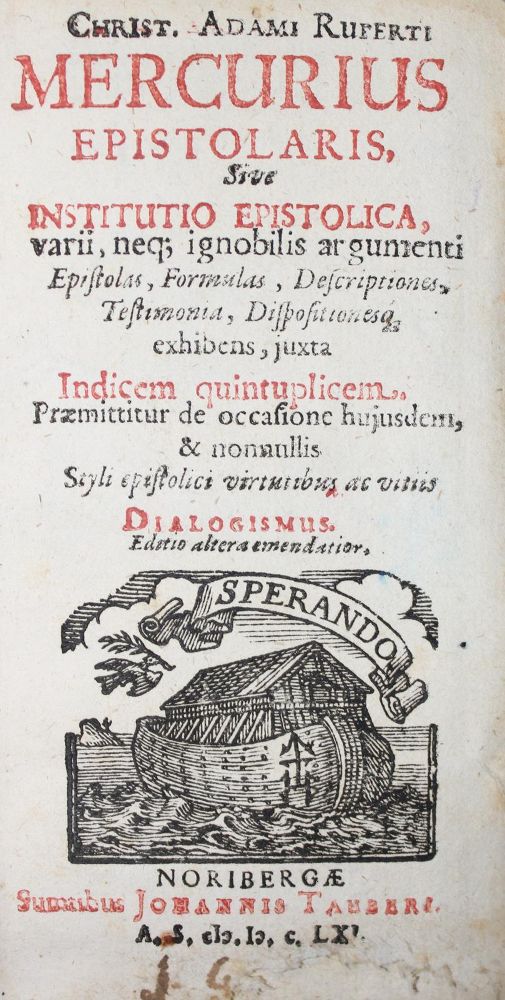 CHRIST. ADAMI RUPERTI
MERCURIUS
EPISTOLARIS,
Sive
INSTITUTIO EPISTOLICA,
varii, neq; ignobilis argumenti
Epiſtolas, Formulas, Deſcriptiones,
Teſtimonia, Diſpoſitionesq́;
exhibens, juxta
Indicem quintuplicem.
Præmittitur de occaſione hujusdem,
& nonnullis
Styli epiſtolici virtutibus ac vitiis
DIALOGISMUS.
Editio altera emendatior,
SPERANDO
NORIBERGÆ
Sumtibus JOHANNIS TAUBERI.
A. S. cIɔ. Iɔ. c. LXI.